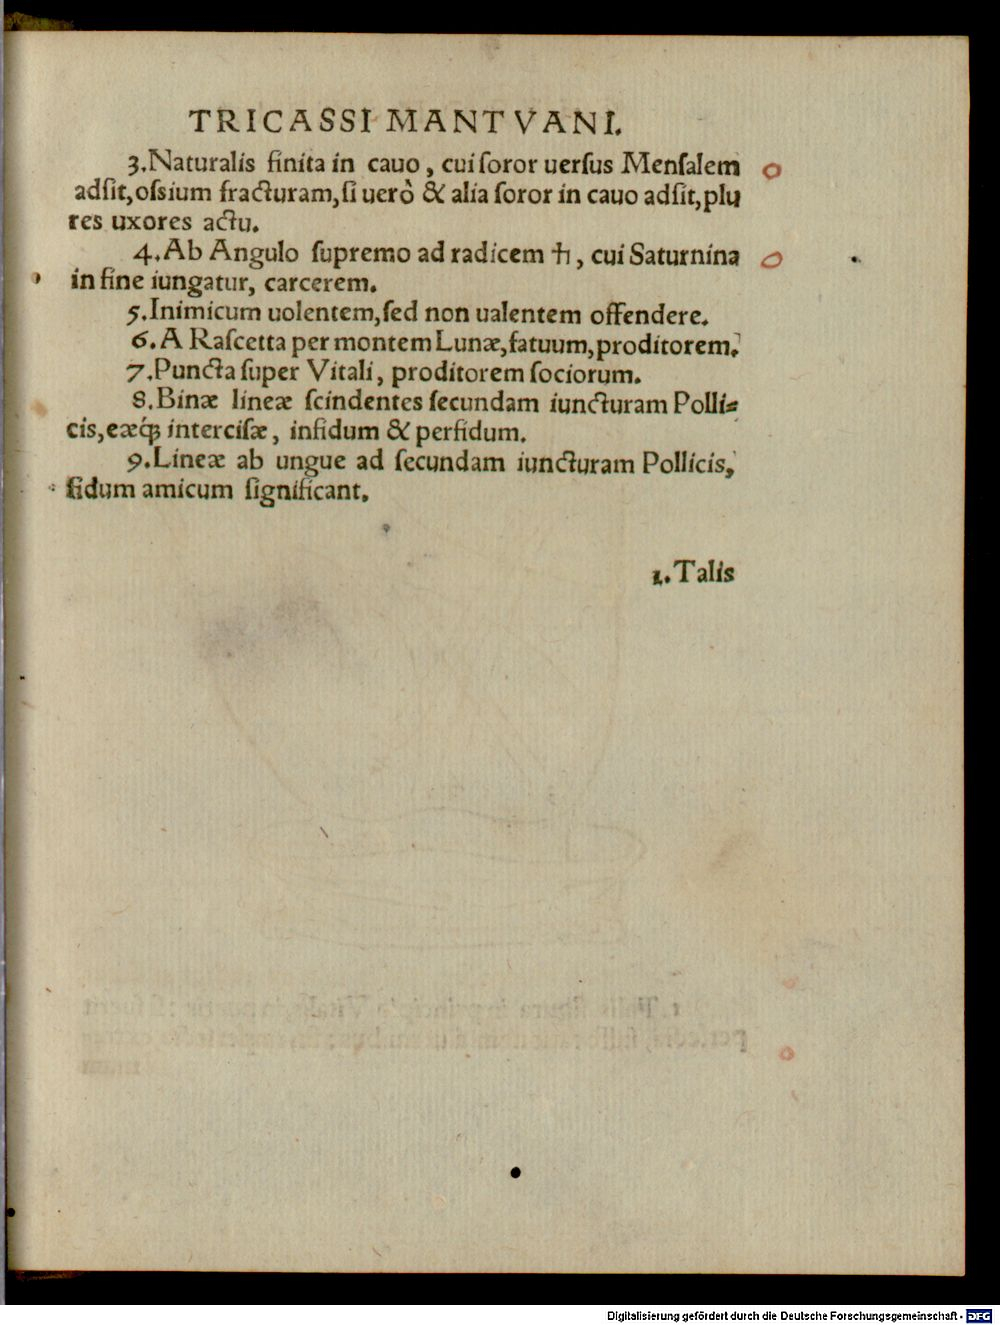 TRICASSI MANTVANI.
3. Naturalis finita in cauo, cui ſoror uerſus Menſalem
adſit, oſsium fracturam, ſi uerò & alia ſoror in cauo adſit, plu
res uxores actu.
4. Ab Angulo ſupremo ad radicem ♄, cui Saturnina
in fine iungatur, carcerem.
5. Inimicum uolentem, ſed non ualentem offendere.
6. A Raſcetta per montem Lunæ, fatuum, proditorem.
7. Puncta ſuper Vitali, proditorem ſociorum.
8. Binæ lineæ ſcindentes ſecundam iuncturam Polli-
cis, eæq́ꝫ interciſæ, infidum & perfidum.
9. Lineæ ab ungue ad ſecundam iuncturam Pollicis,
fidum amicum ſignificant.
1. Talis
Digitalisierung gefördert durch die Deutsche Forschungsgemeinschaft - DFG